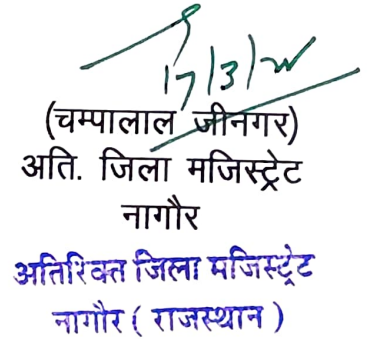 17/3/
(चम्पालाल जीनगर)
अति. जिला मजिस्ट्रेट
नागौर
अतिरिक्त जिला मजिस्ट्रेट
नागौर ( राजस्थान )